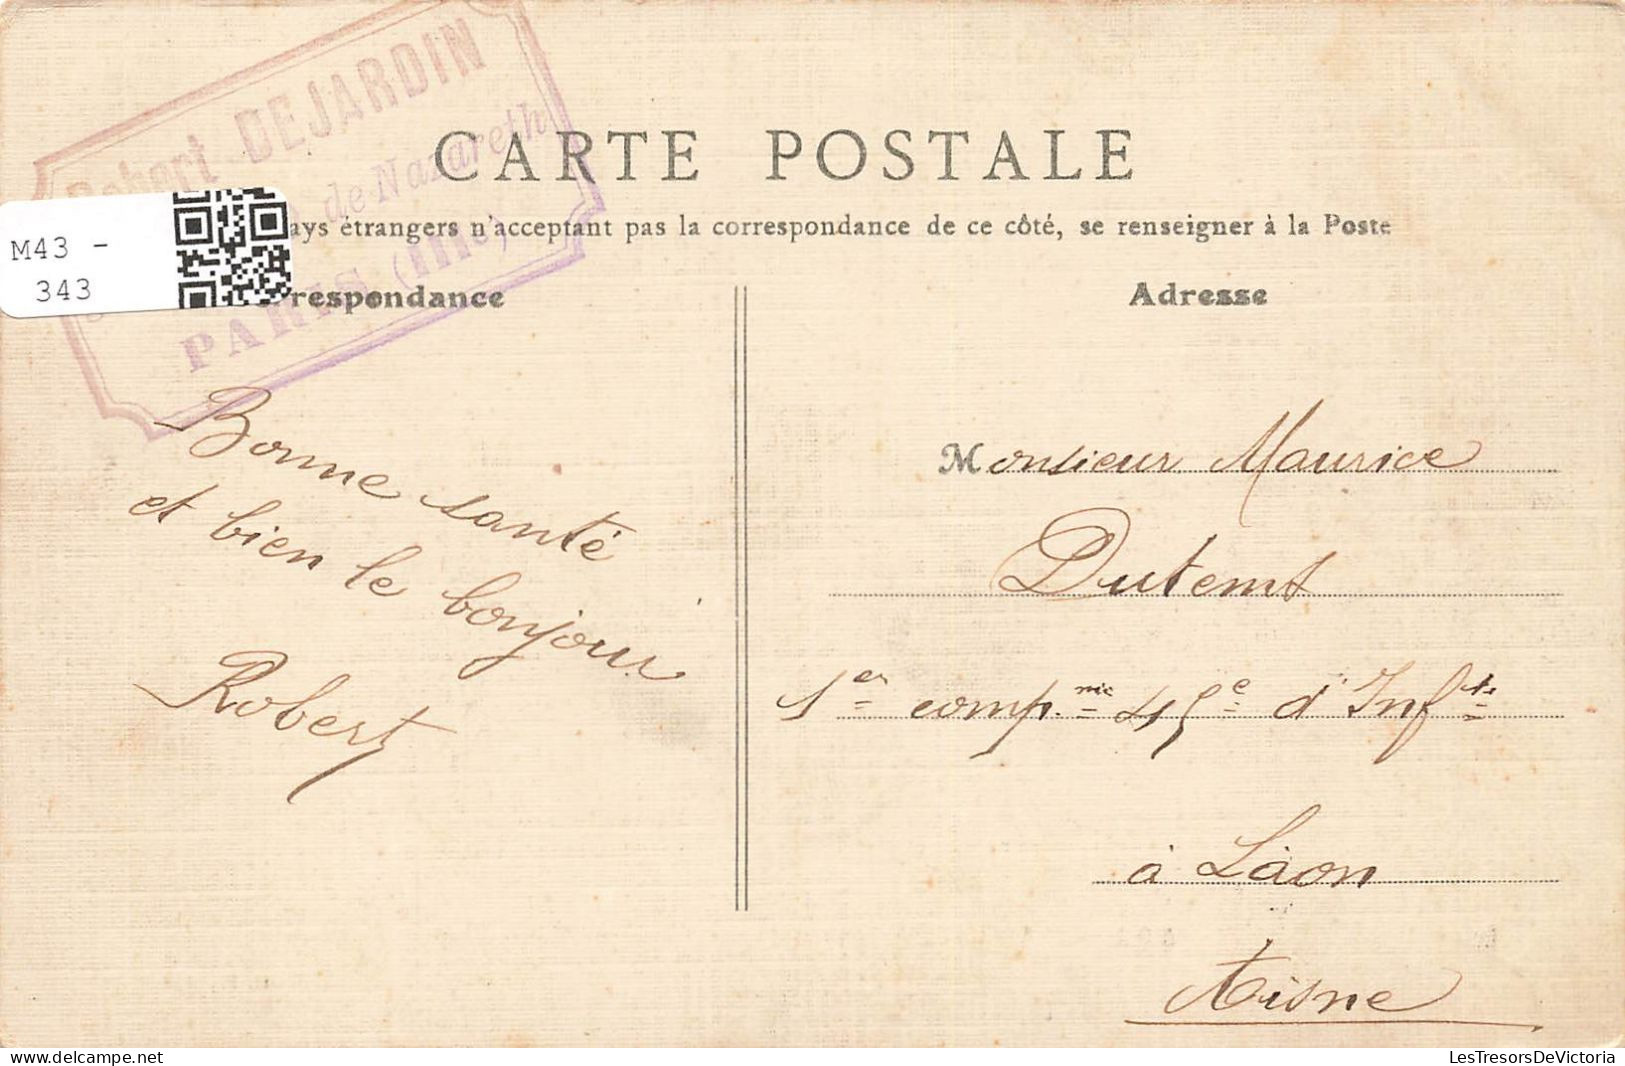 Robert DEJARDIN
de Nazareth
PARIS (IIIe)
CARTE POSTALE
pays étrangers n'acceptant pas la correspondance de ce côté, se renseigner à la Poste
M43 -
343
respondance
Adresse
Bonne santé
et bien le bonjour
Robert
Monsieur Maurice
Dutemt
1er compnie 45e d'Infie
à Läon
Aisne
LesTresorsDeVictoria
www.delcampe.net